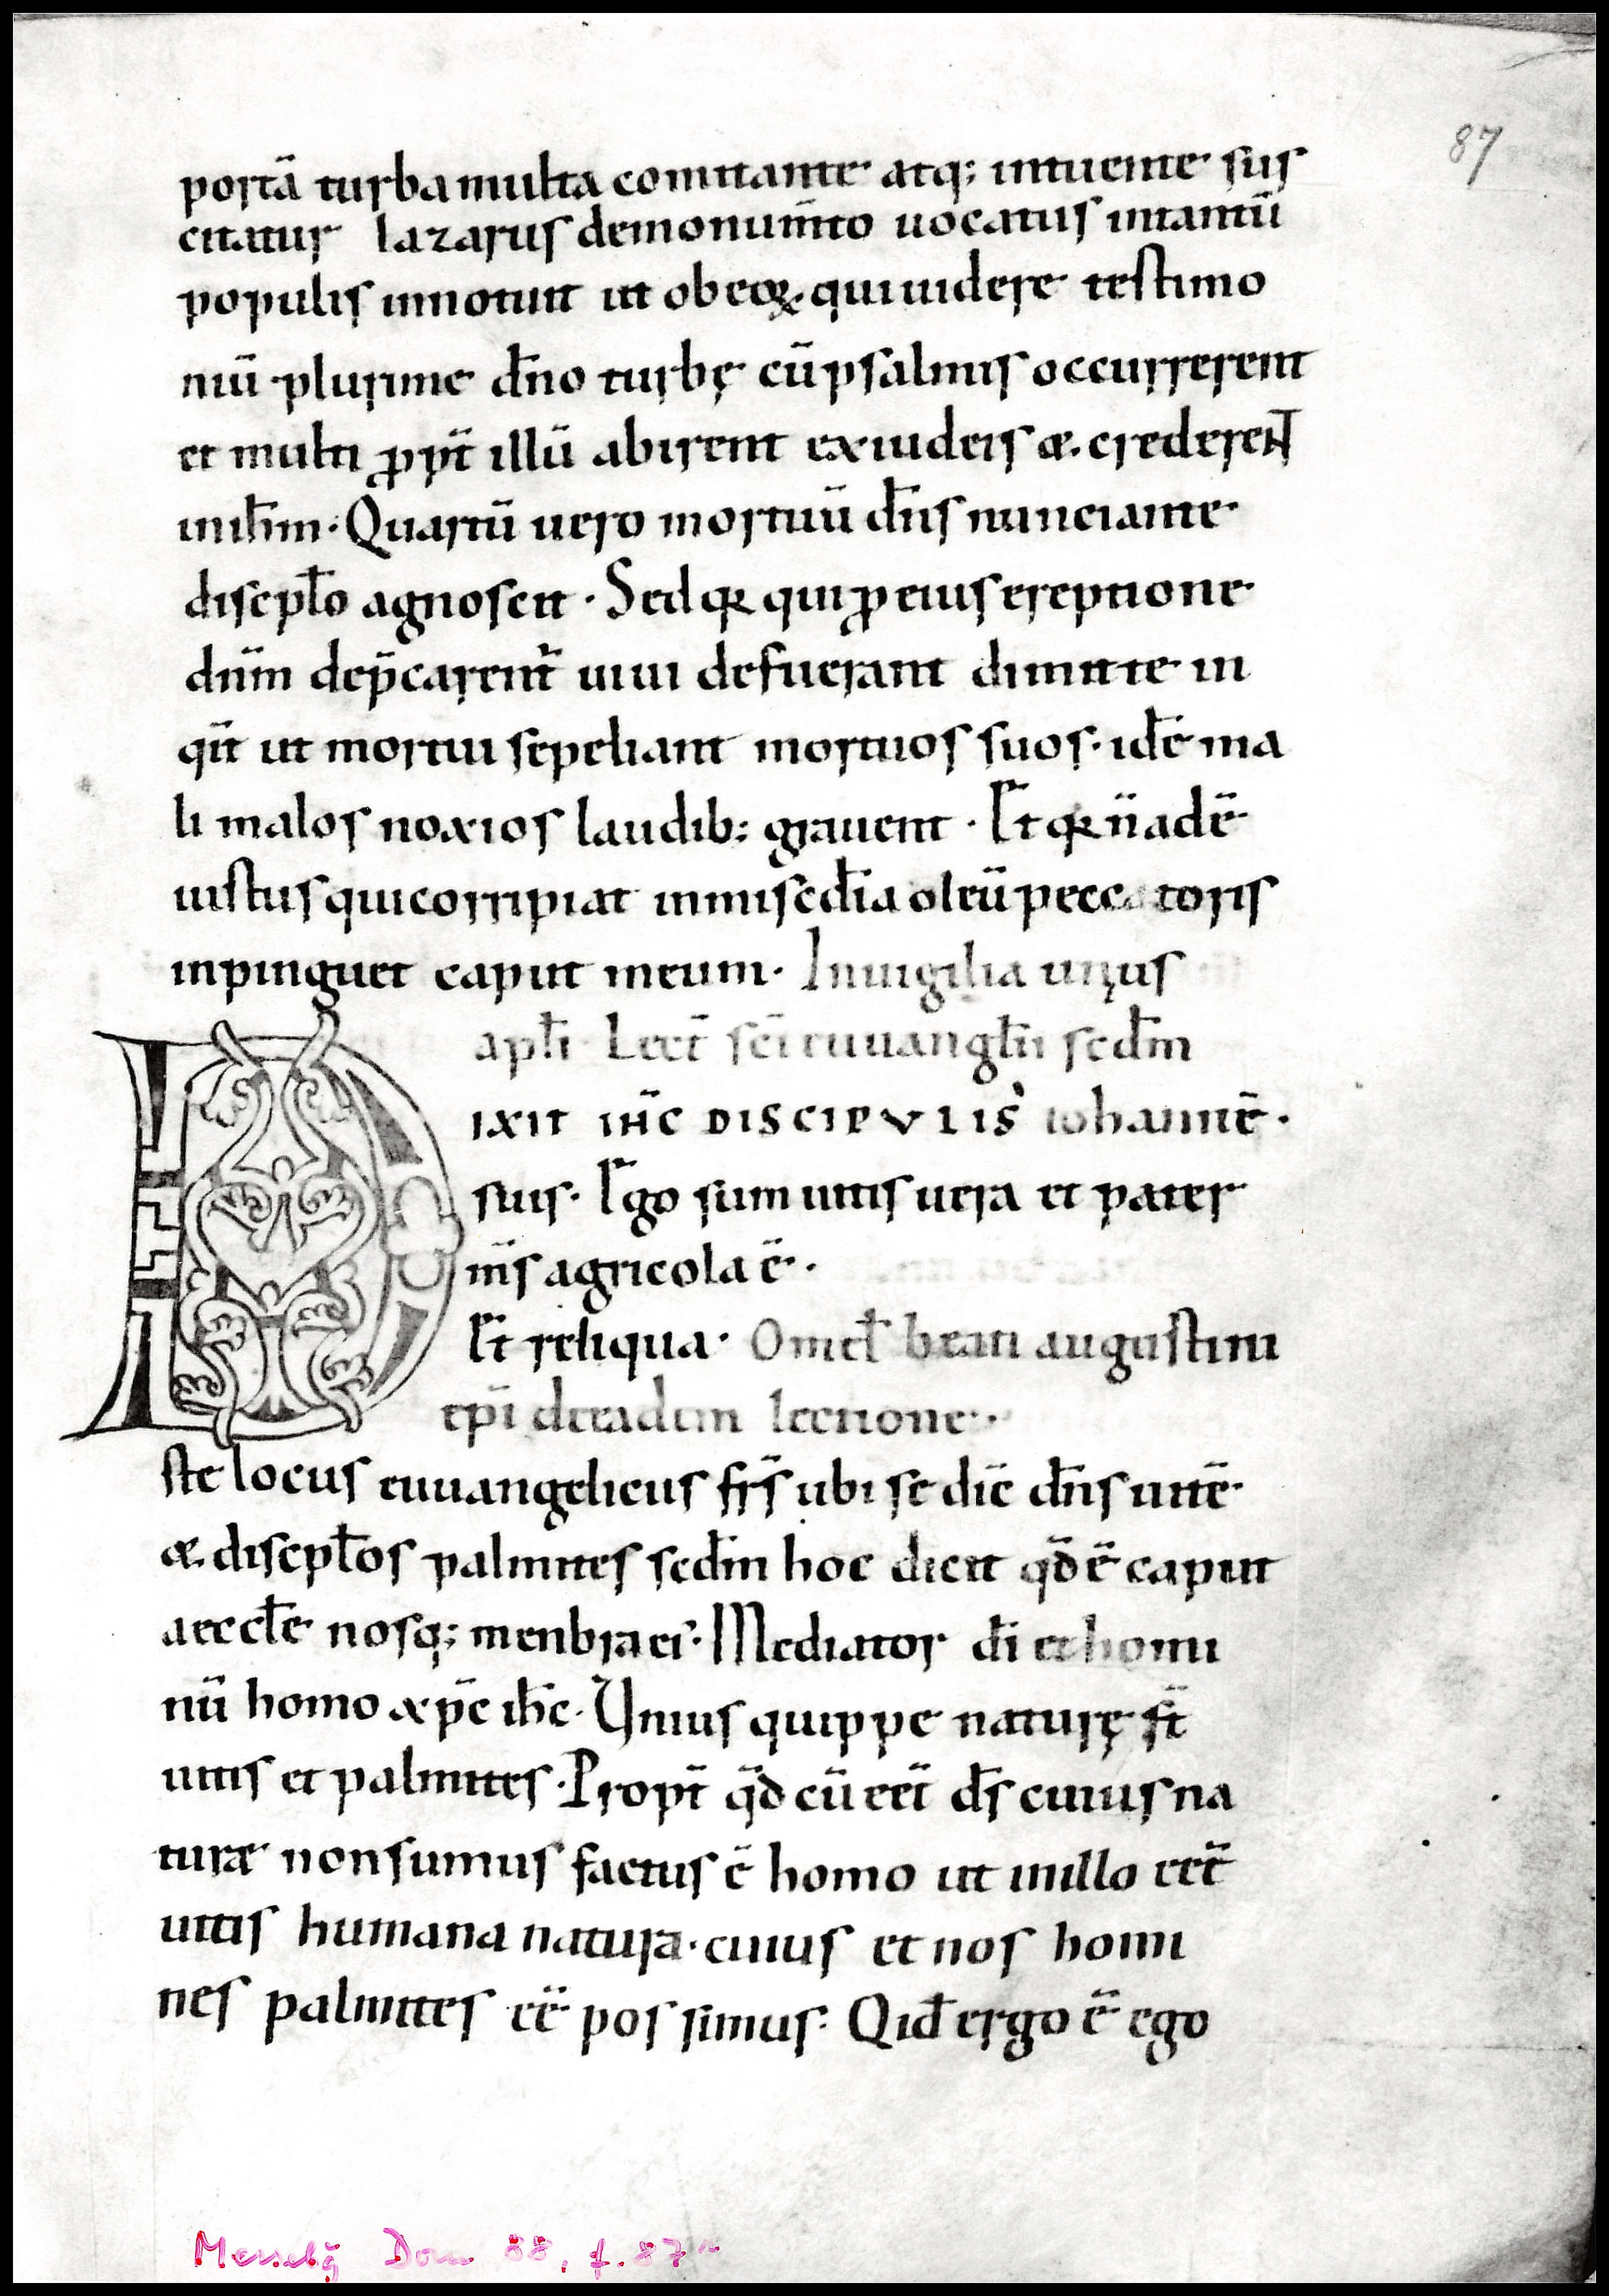 87
portā turba multa comitante atq; intuente sus
citatur lazarus demonum̄to uocatus intantū
populis innotuit ut ob eoꝝ. qui uidere testimo
niū plurime dn̄o turbę cū psalmis occurrerent
et multi ꝓpt̄ illū abirent ex iudeis & crederent
in ih̄m. Quartū uero mortuū dn̄s nunciante
discipl̄o agnoscit. Sed qꝛ qui ꝓ eius ereptione
dūm dep̄carent̄ uiui defuerant dimitte in
qt̄ ut mortui sepeliant mortuos suos. idē ma
li malos noxios laudib; grauent. Et qꝛ n̄ adē
iustus qui corripiat in miscd̄ia oleū peccatoris
inpinguet caput meum. In uigilia unius
apl̄i Lect̄ sc̄i euuangl̄ii scd̄m
DIXIT IHC̄ DISCIPVLIS iohannē.
suis. Ego sum uitis uera et pater
m̄s agricola ē.
Et reliqua. Omel̄ beati augustini
ep̄i de eadem lectione.
ste locus euuangelicus fr̄s ubi se dic̄ dn̄s uitē
& discipl̄os palmites scd̄m hoc dicit qd̄ ē caput
aeccl̄e nosq; menbra ei. Mediator dī et homi
nū homo xp̄c ih̄c. Unius quippe naturę st̄
uitis et palmites. Propt̄ qd̄ cū eet̄ ds̄ cuius na
turae non sumus factus ē homo ut in illo eet̄
uitis humana natura. cuius et nos homi
nes palmites eē possimus. Qid̄ ergo ē ego
Merseb̄g Dom 88, f. 87r